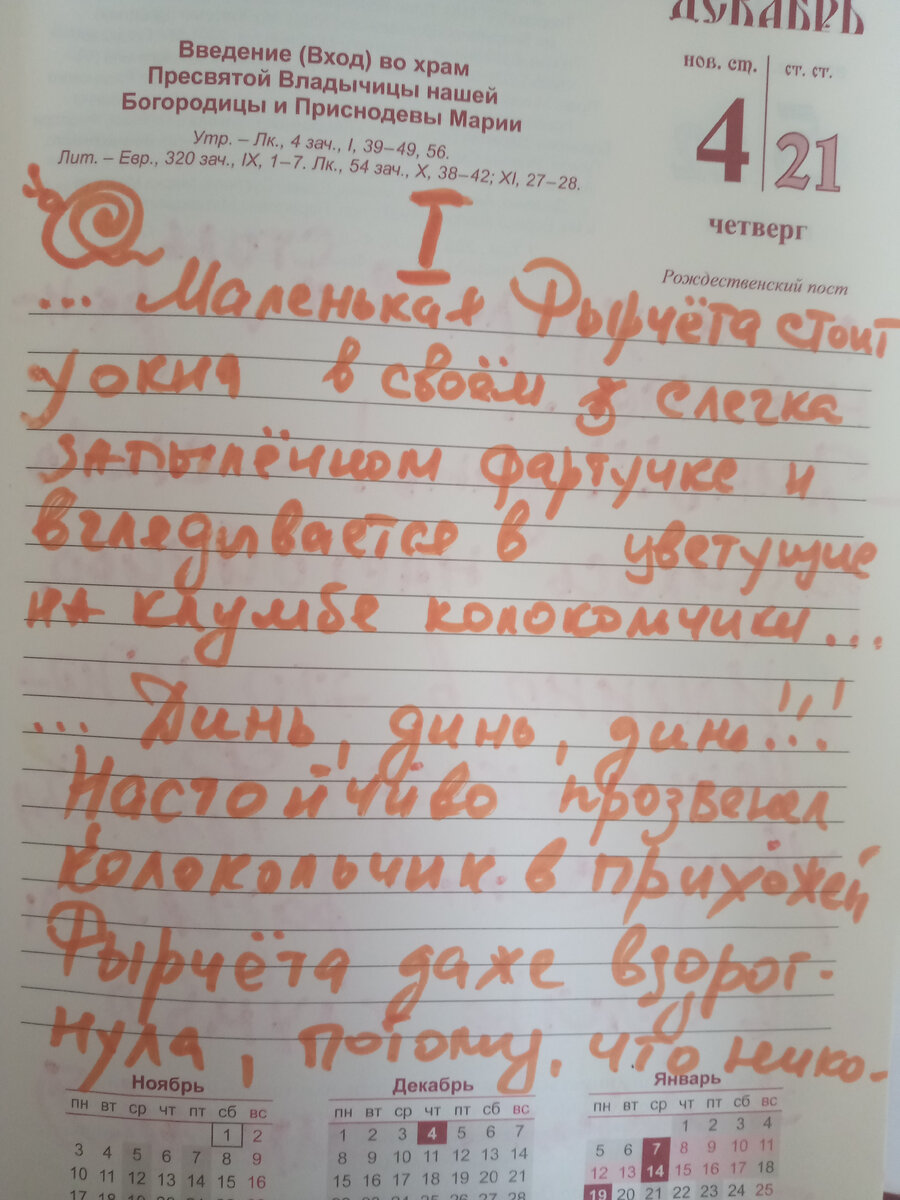 ДЕКАБРЬ
Введение (Вход) во храм
Пресвятой Владычицы нашей
Богородицы и Приснодевы Марии
Утр. – Лк., 4 зач., I, 39–49, 56.
Лит. – Евр., 320 зач., IX, 1–7. Лк., 54 зач., X, 38–42; XI, 27–28.
нов. ст. ст. ст.
4 21
четверг
Рождественский пост
I
... Маленькая Фырчёта стоит
у окна в своём слегка
запылённом фартучке и
вглядывается в цветущие
на клумбе колокомчики...
... Динь, динь, динь!!!
Настойчиво прозвенел
колокольчик в прихожей
Фырчёта даже взорог-
нула, потому, что нико-
Ноябрь Декабрь Январь
пн вт ср чт пт сб вс пн вт ср чт пт сб вс пн вт ср чт пт сб вс
1 2 1 2 3 4 5 6 7 1 2 3 4
3 4 5 6 7 8 9 8 9 10 11 12 13 14 5 6 7 8 9 10 11
10 11 12 13 14 15 16 15 16 17 18 19 20 21 12 13 14 15 16 17 18
17 18 19 20 21 22 23 24 25 26 27 28 19 20 21 22 23 24 25